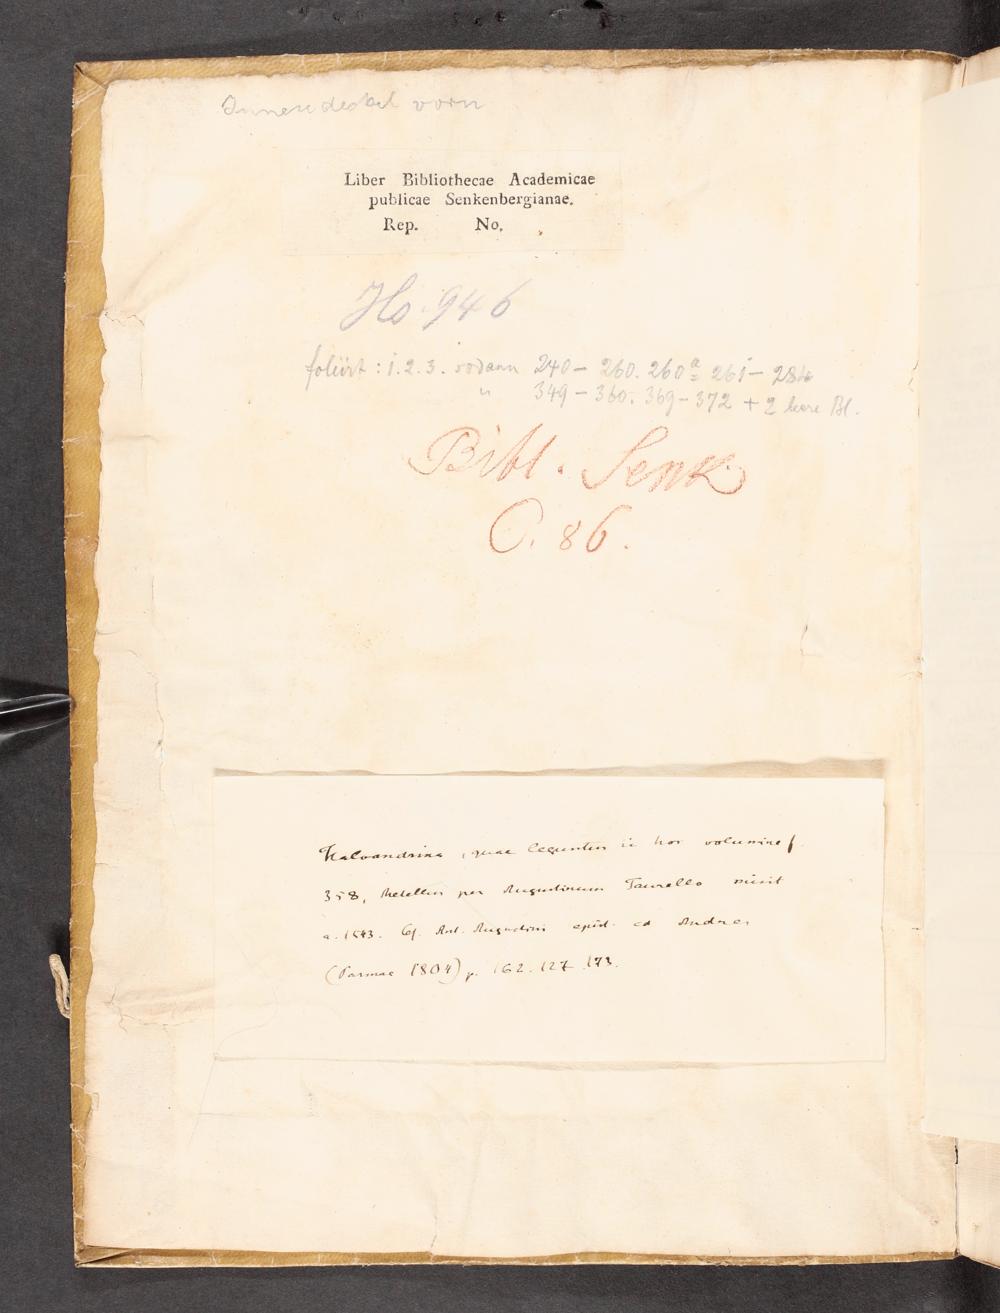 Innendeckel vorn
Liber Bibliothecae Academicae
publicae Senkenbergianae.
Rep. No.
Hs. 946
foliirt: 1. 2. 3. sodann 240 – 260. 260a 261 – 284
" 349 – 360. 369 – 372 + 2 leere Bl.
Bibl. Senk
O. 86.
Haloandrina, quae leguntur in hoc volumine f.
358, Metellus per Augustinum Taurello misit
a. 1543. Cf. Ant. Augustini epist. ed Andres
(Parmae 1804) p. 162. 127. 173.